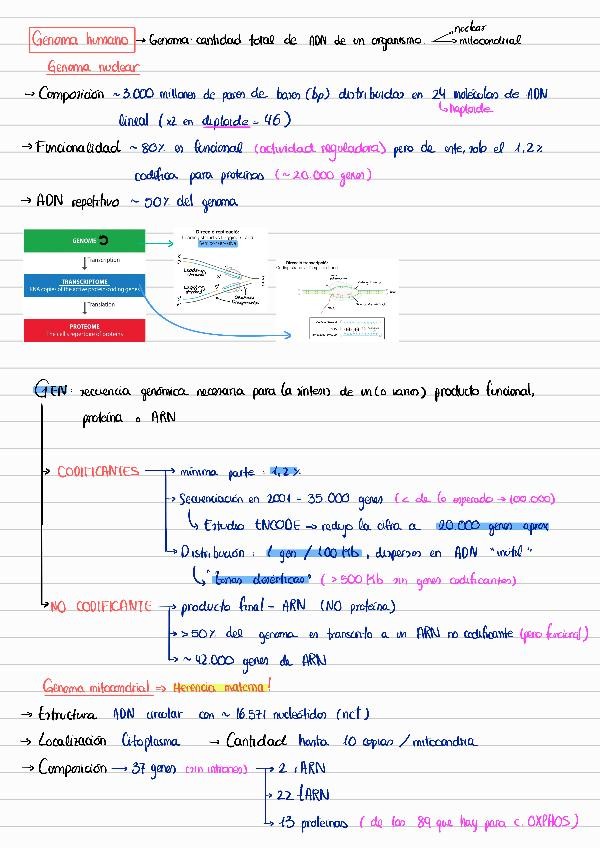 Genoma humano → Genoma: cantidad total de ADN de un organismo. nuclear
mitocondrial
Genoma nuclear
→ Composición ~ 3.000 millones de pares de bases (bp) distribuidas en 24 moléculas de ADN
haploide
lineal (x2 en diploide = 46)
→ Funcionalidad ~ 80% es funcional (actividad reguladora) pero de este, solo el 1,2%
codifica para proteínas (~ 20.000 genes)
→ ADN repetitivo ~ 50% del genoma
GENOME
Transcription
TRANSCRIPTOME
RNA copies of the active protein-coding genes
Translation
PROTEOME
The cell's repertoire of proteins
GEN: secuencia genómica necesaria para la síntesis de un (o varios) producto funcional,
proteína o ARN
→ CODIFICANTES → mínima parte: 1,2%
→ Secuenciación en 2001 - 35.000 genes (< de lo esperado → 100.000)
↳ Estudio ENCODE → redujo la cifra a 20.000 genes aprox
→ Distribución: 1 gen / 100 Kb, dispersos en ADN "inútil"
↳ "zonas desérticas" ( > 500 Kb sin genes codificantes)
→ NO CODIFICANTE → producto final - ARN (NO proteína)
→ > 50% del genoma es transcrito a un ARN no codificante (pero funcional)
→ ~ 42.000 genes de ARN
Genoma mitocondrial ⇒ Herencia materna!
→ Estructura ADN circular con ~ 16.571 nucleótidos (nct)
→ Localización Citoplasma → Cantidad hasta 10 copias / mitocondria
→ Composición → 37 genes (sin intrones) → 2 rARN
→ 22 tARN
→ 13 proteínas ( de las 89 que hay para c. OXPHOS)